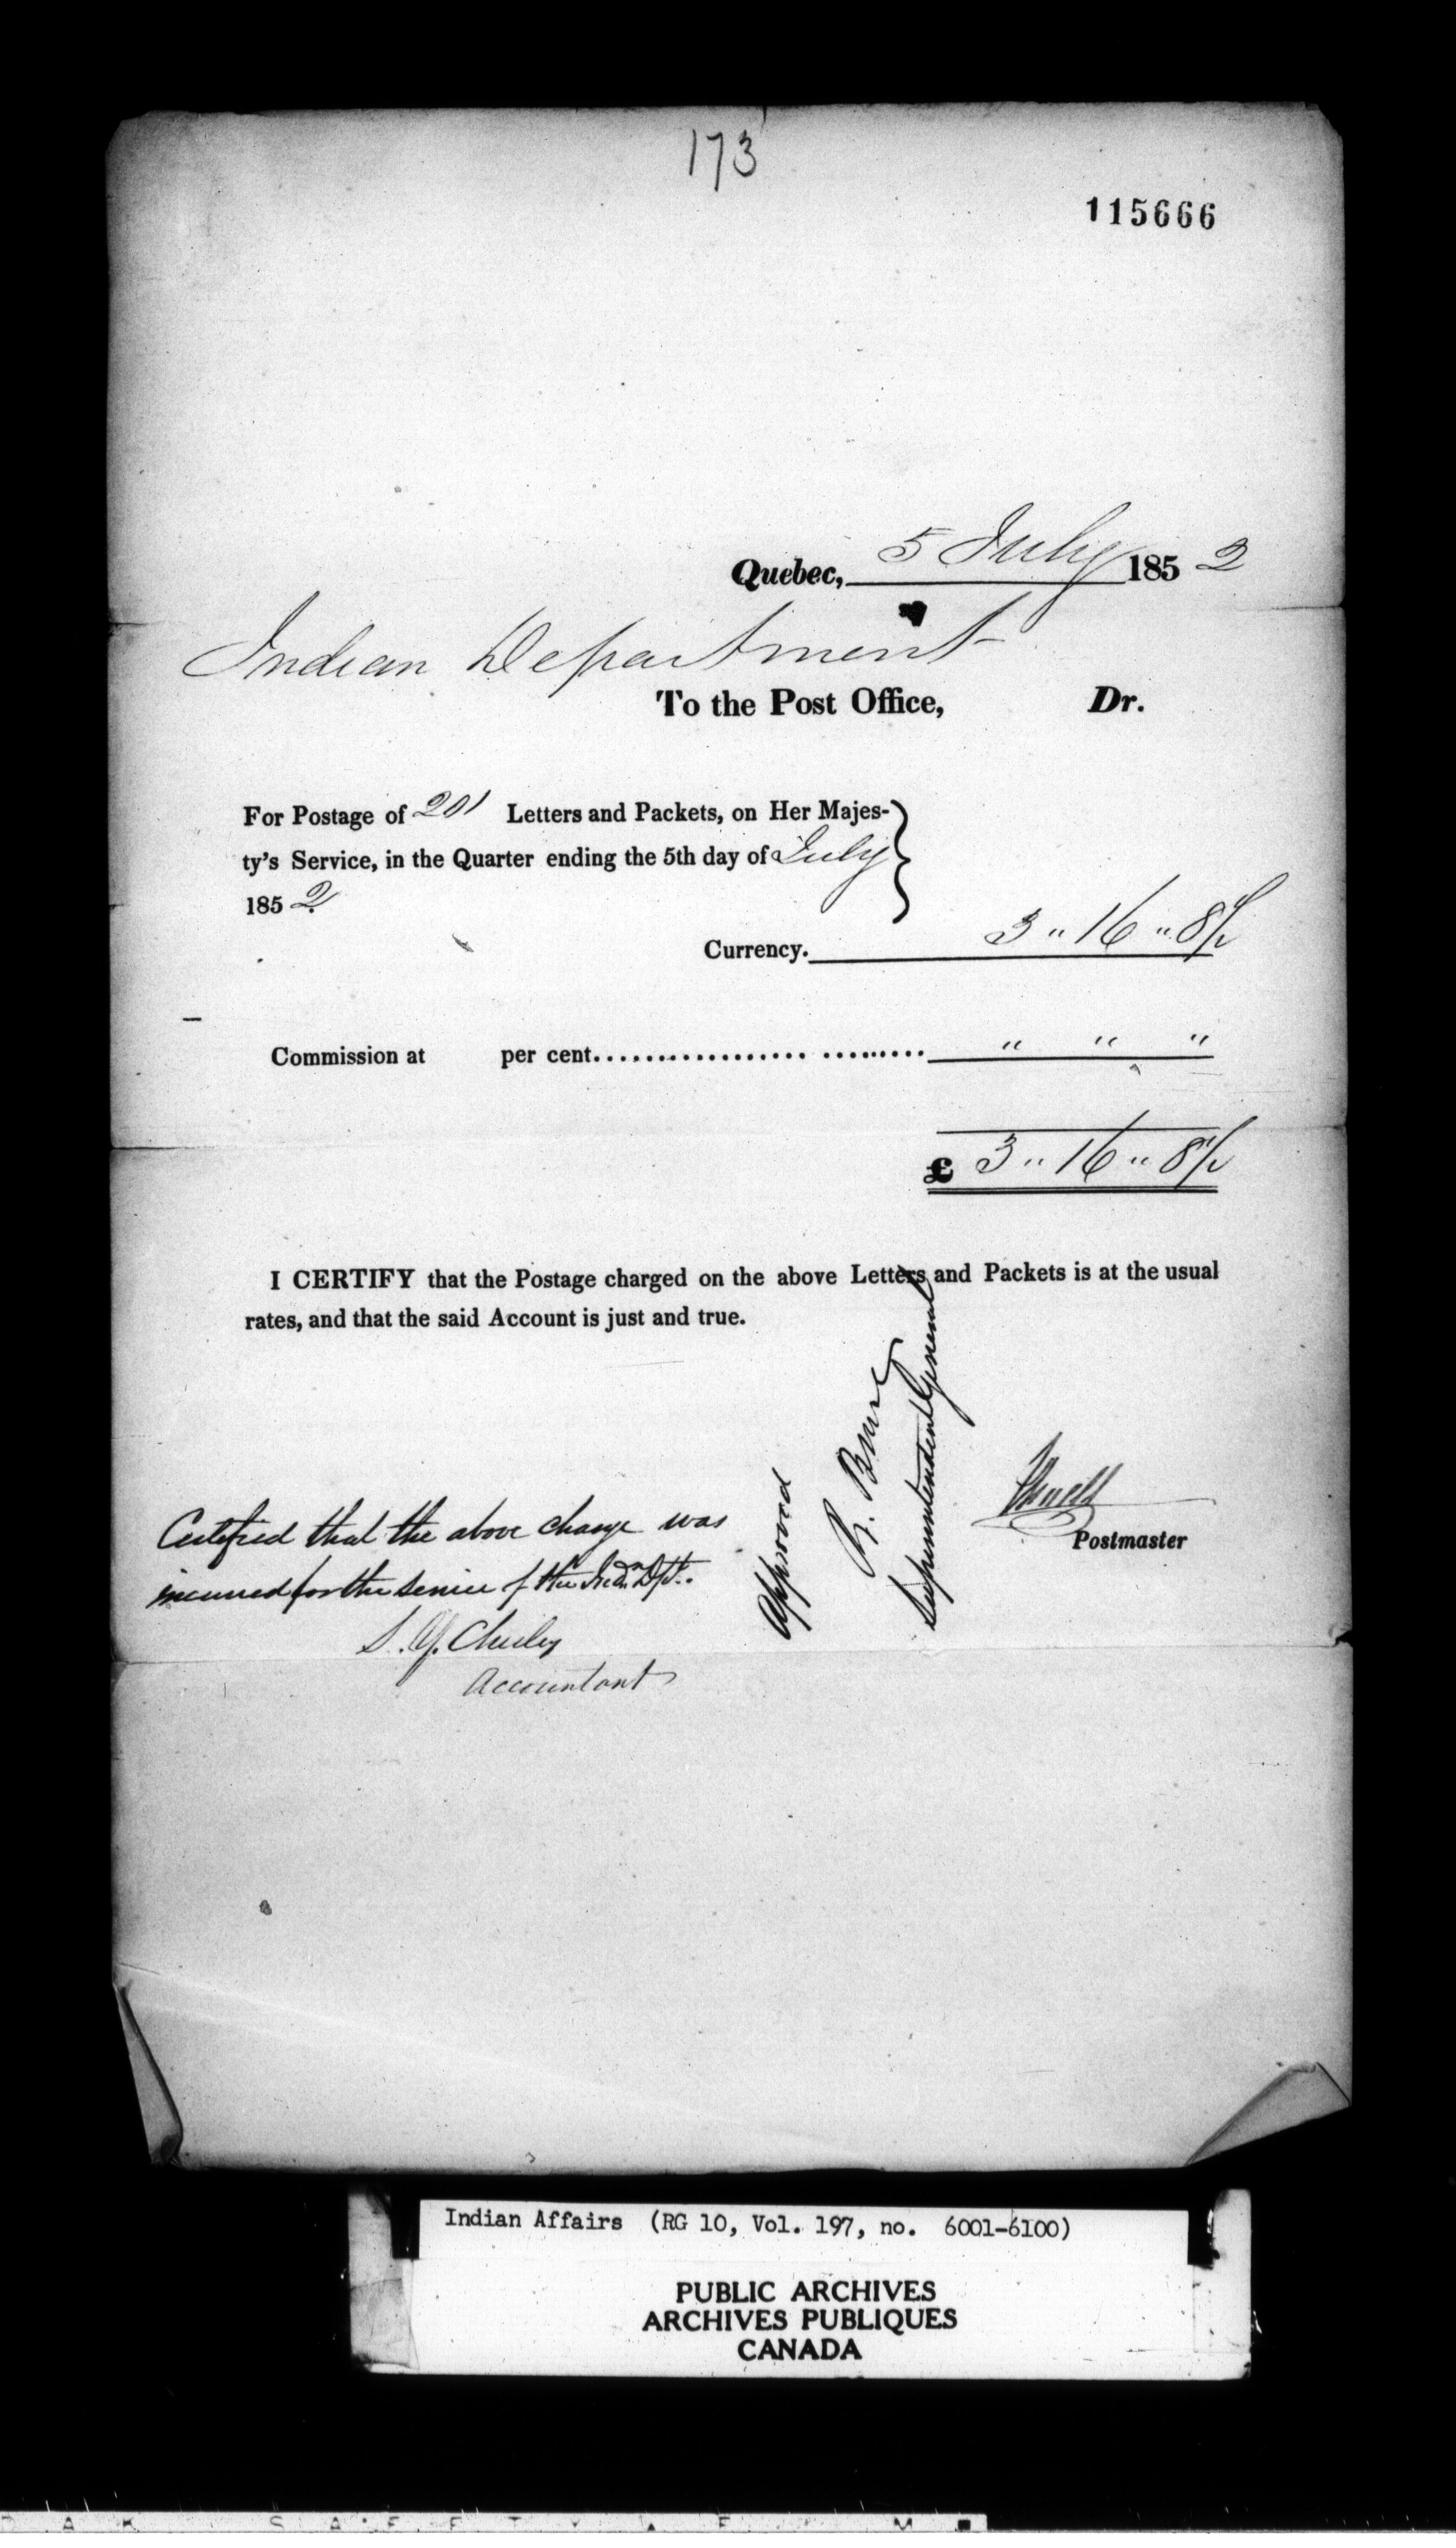 173
115666
Quebec, 5 July 1852
Indian Department
To the Post Office, Dr.
For Postage of 201 Letters and Packets, on Her Majes-
ty's Service, in the Quarter ending the 5th day of July
1852
Currency. 3 " 16 " 8½
Commission at per cent.......................... " " "
£ 3 " 16 " 8½
I CERTIFY that the Postage charged on the above Letters and Packets is at the usual
rates, and that the said Account is just and true.
Approved
R. Bruce
Superintendent General
Postmaster
Certified that the above charge was
incurred for the service of the Indn. Dpt.
S. Y. Chesley
Accountant
Indian Affairs (RG 10, Vol. 197, no. 6001-6100)
PUBLIC ARCHIVES
ARCHIVES PUBLIQUES
CANADA